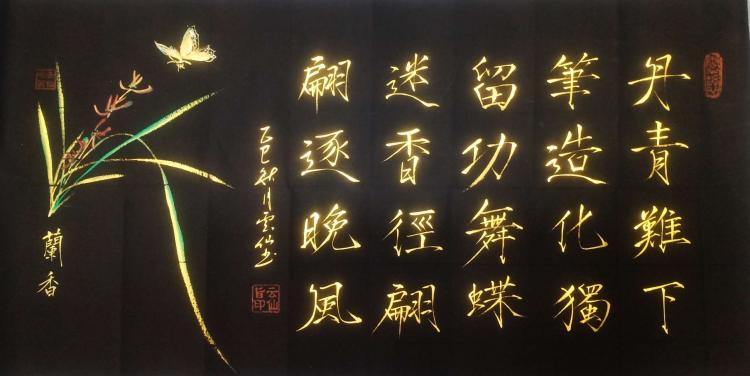 丹青難下
筆造化獨
留功舞蝶
迷香徑翩
翩逐晚風
乙巳秋月雲仙书
云仙
蘭香